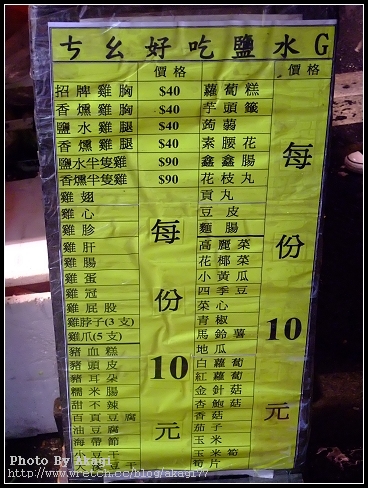 ㄘㄠ好吃鹽水G
價格
招牌雞胸 $40
香燻雞胸 $40
鹽水雞腿 $40
香燻雞腿 $40
鹽水半隻雞 $90
香燻半隻雞 $90
雞翅
雞心
雞胗
雞肝
雞腸
雞蛋
雞冠
雞屁股
雞脖子(3支)
雞爪(5支)
豬血糕
豬頭皮
豬耳朵
糯米腸
甜不辣
百頁豆腐
油豆腐
海帶節
小豆干
每份10元
價格
蘿蔔糕
芋頭簽
蒟蒻
素腰花
鑫鑫腸
花枝丸
貢丸
豆皮
麵腸
高麗菜
花椰菜
小黃瓜
四季豆
菜心
青椒
馬鈴薯
地瓜
白蘿蔔
紅蘿蔔
金針菇
杏鮑菇
香菇
茄子
玉米
玉米筍
筍片
每份10元
Photo By Akagi
http://www.wretch.cc/blog/akagi77